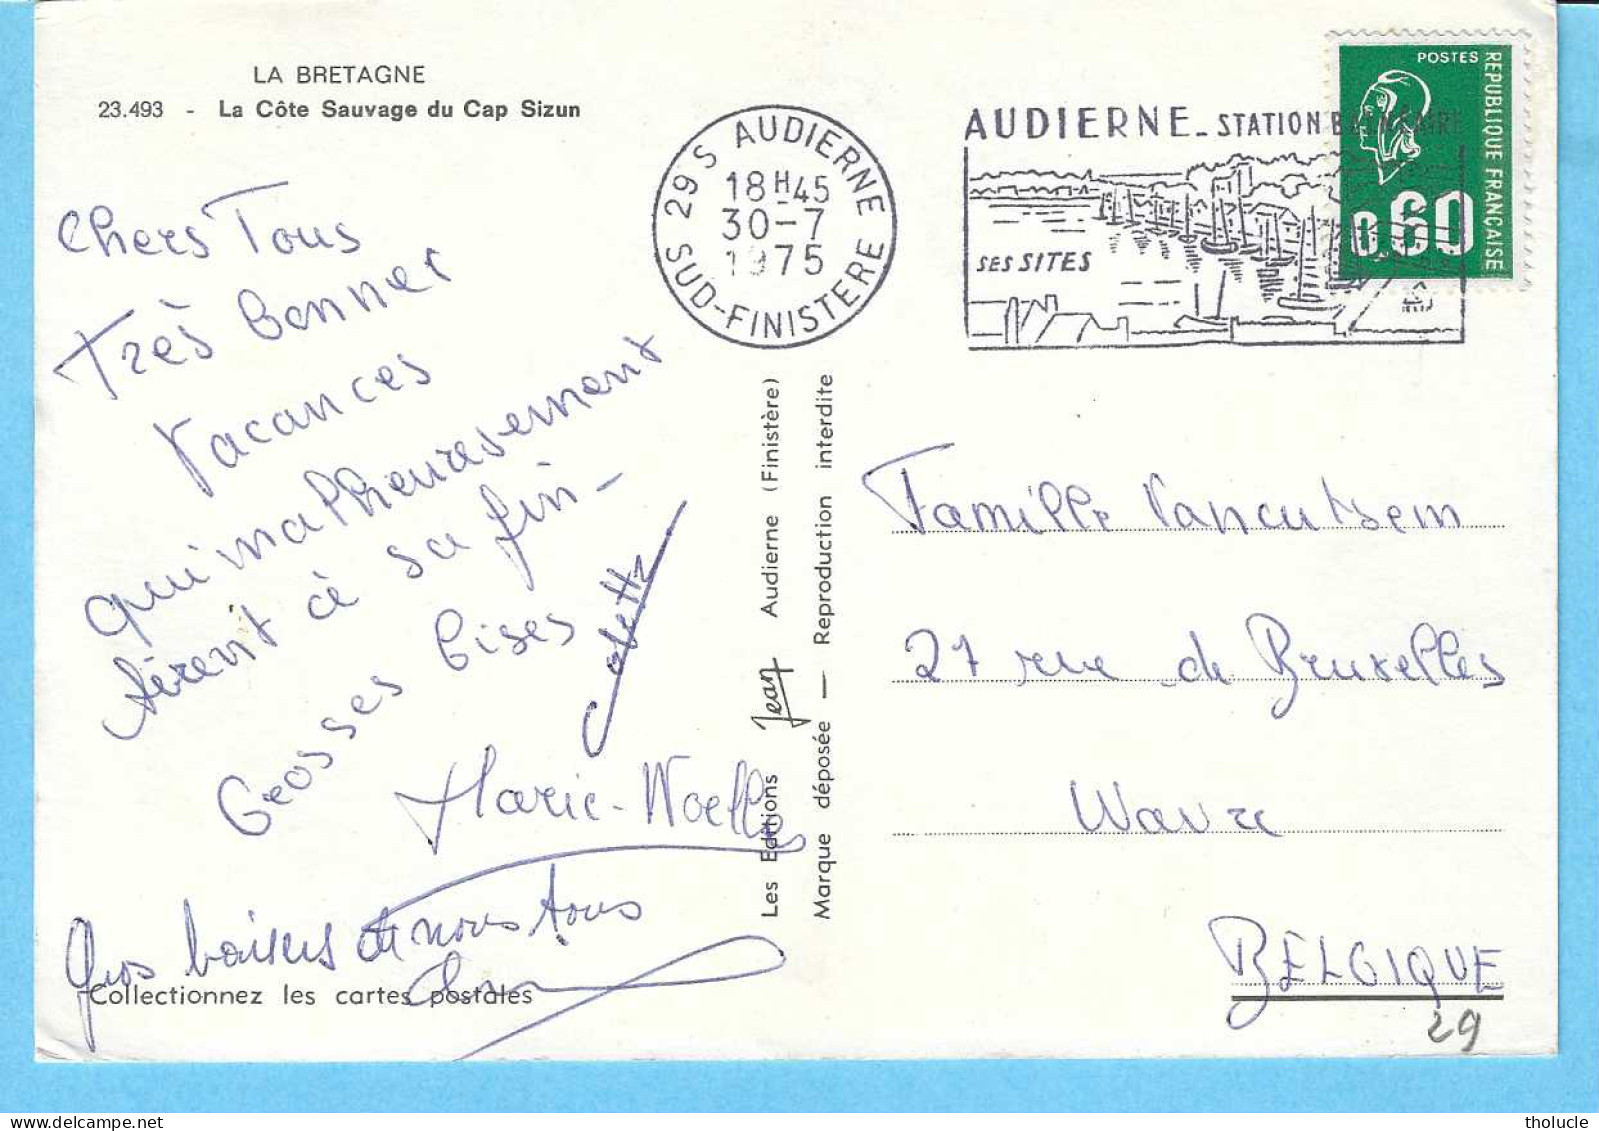 LA BRETAGNE
23.493 - La Côte Sauvage du Cap Sizun
Chers Tous
Très bonnes
Vacances
qui malheureusement
tirent à sa fin -
Grosses bises
Colette
Marie-Noelle
Gros baisers de nous tous
Collectionnez les cartes postales
Les Editions Jean Audierne (Finistère)
Marque déposée — Reproduction interdite
29 S AUDIERNE
18H45
30-7
1975
SUD-FINISTERE
AUDIERNE - STATION BALNÉAIRE
SES SITES
POSTES
REPUBLIQUE FRANÇAISE
0.60
Famille Vancutsem
27 rue de Bruxelles
Wavre
BELGIQUE
29
tholucle